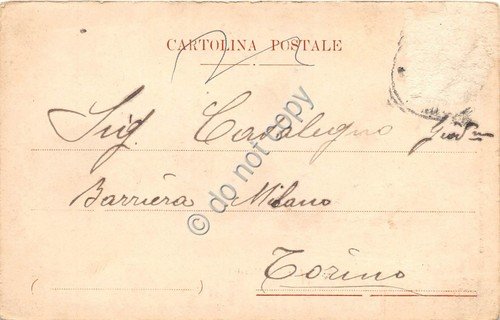 CARTOLINA POSTALE
Sig. Cavalegno
Barriera Milano
Torino
© do not copy